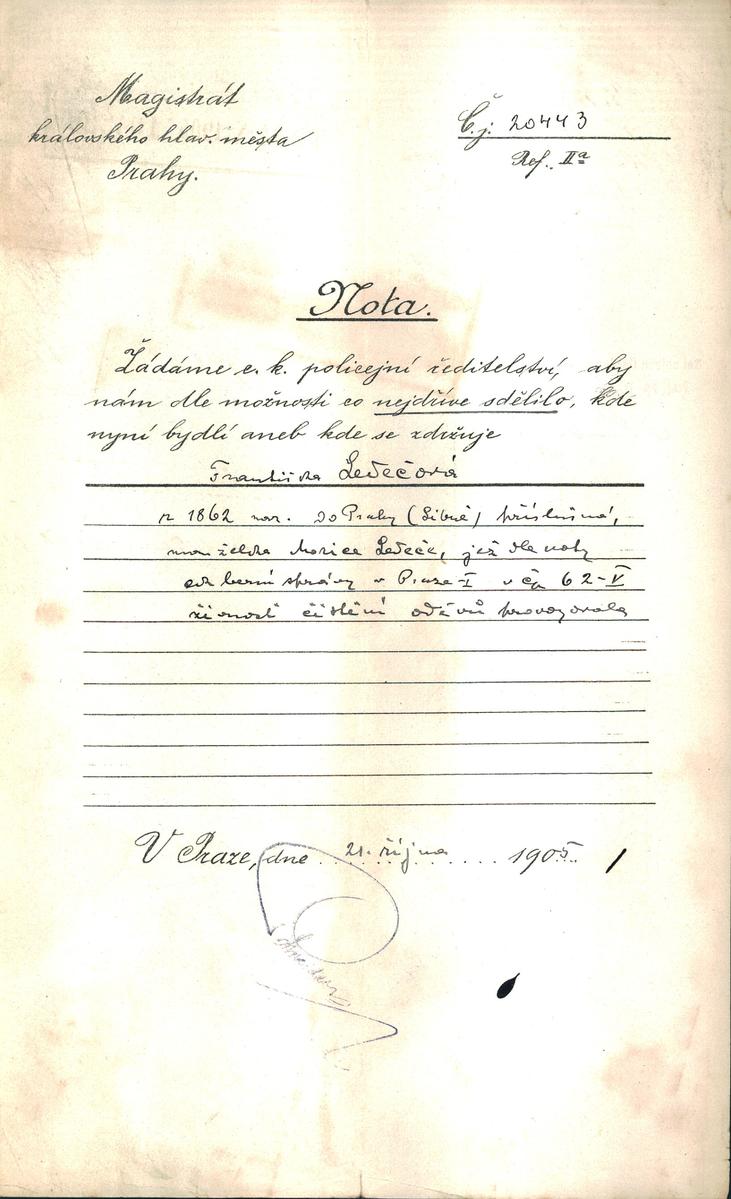 Magistrát
královského hlav. města
Prahy.
Č. j: 20443
Ref. IIa
Nota.
Žádáme c. k. policejní ředitelství, aby
nám dle možnosti co nejdříve sdělilo, kde
nyní bydlí aneb kde se zdržuje
Františka Ledečová
r 1862 nar. do Prahy (Libně) příslušná,
manželka Morice Ledeče, jež dle noty
odb. berní správy v Praze-I v čp 62-V
živnost čištění oděvů provozovala
V Praze, dne 21. října 1905